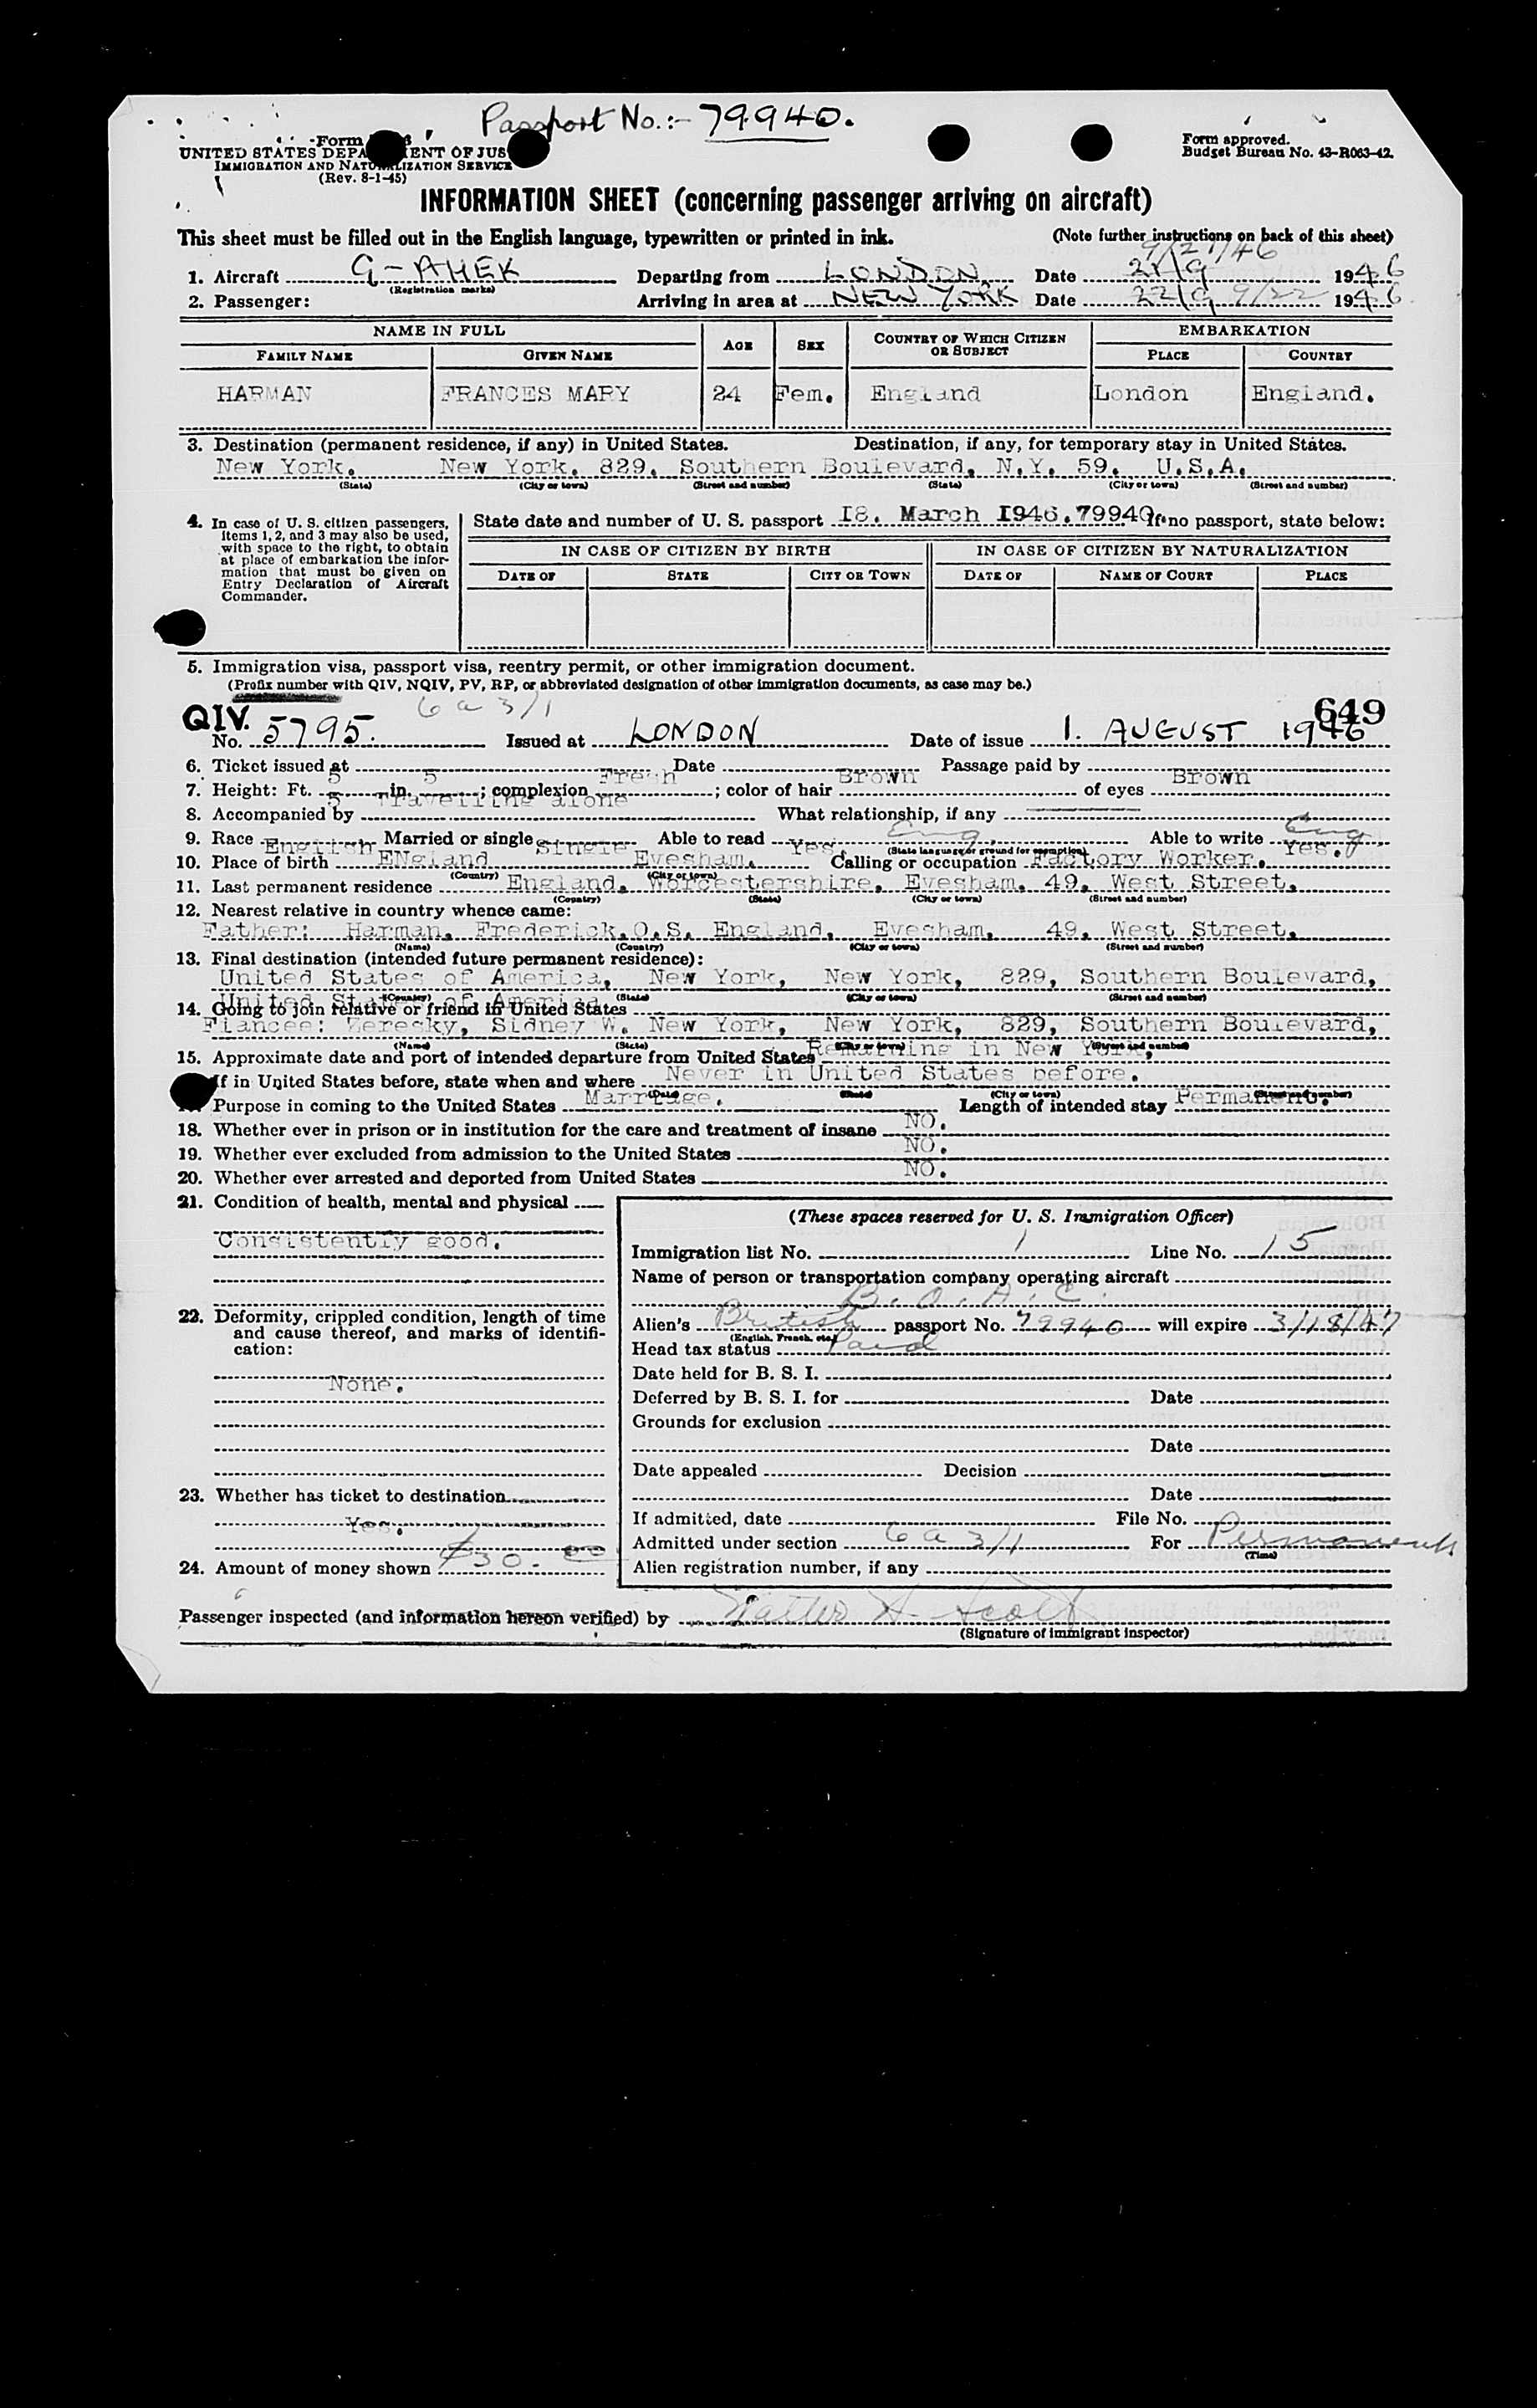 Passport No.:- 79940.
Form
UNITED STATES DEPA ENT OF JUS
IMMIGRATION AND NATURALIZATION SERVICE
(Rev. 8-1-45)
Form approved.
Budget Bureau No. 43-R063-42.
INFORMATION SHEET (concerning passenger arriving on aircraft)
This sheet must be filled out in the English language, typewritten or printed in ink. (Note further instructions on back of this sheet)
9/21/46
1. Aircraft G-AHEK Departing from LONDON. Date 21/9 1946
(Registration marks)
2. Passenger: Arriving in area at NEW YORK Date 22/9 9/22 1946
NAME IN FULL AGE SEX COUNTRY OF WHICH CITIZEN OR SUBJECT EMBARKATION
FAMILY NAME GIVEN NAME PLACE COUNTRY
HARMAN FRANCES MARY 24 Fem. England London England.
3. Destination (permanent residence, if any) in United States. Destination, if any, for temporary stay in United States.
New York. New York. 829. Southern Boulevard, N.Y. 59. U.S.A.
(State) (City or town) (Street and number) (State) (City or town) (Street and number)
4. In case of U. S. citizen passengers, items 1, 2, and 3 may also be used, with space to the right, to obtain at place of embarkation the information that must be given on Entry Declaration of Aircraft Commander.
State date and number of U. S. passport I8. March I946.79940. If no passport, state below:
IN CASE OF CITIZEN BY BIRTH IN CASE OF CITIZEN BY NATURALIZATION
DATE OF STATE CITY OR TOWN DATE OF NAME OF COURT PLACE
5. Immigration visa, passport visa, reentry permit, or other immigration document.
(Prefix number with QIV, NQIV, PV, RP, or abbreviated designation of other immigration documents, as case may be.)
6 a 3/1 649
QIV.
No. 5795. Issued at LONDON Date of issue 1. AUGUST 1946
6. Ticket issued at Date Passage paid by
7. Height: Ft. 5 in. 5; complexion Fresh; color of hair Brown of eyes Brown
8. Accompanied by Travelling alone What relationship, if any
9. Race English Married or single Single Able to read Yes. Eng. Able to write Yes. Eng.
(State language or ground for exemption)
10. Place of birth ENgland Evesham. Calling or occupation Factory Worker.
(Country) (City or town)
11. Last permanent residence England. Worcestershire. Evesham. 49. West Street.
(Country) (State) (City or town) (Street and number)
12. Nearest relative in country whence came:
Father: Harman. Frederick.O.S. England. Evesham. 49. West Street.
(Name) (Country) (City or town) (Street and number)
13. Final destination (intended future permanent residence):
United States of America, New York, New York, 829, Southern Boulevard,
(Country) (State) (City or town) (Street and number)
14. Going to join relative or friend in United States United States of America
Fiancee: Zeresky, Sidney W. New York, New York, 829, Southern Boulevard,
(Name) (State) (City or town) (Street and number)
15. Approximate date and port of intended departure from United States Remaining in New York,
If in United States before, state when and where Never in United States before.
(Date) (State) (City or town) (Street and number)
Purpose in coming to the United States Marriage. Length of intended stay Permanent.
18. Whether ever in prison or in institution for the care and treatment of insane NO.
19. Whether ever excluded from admission to the United States NO.
20. Whether ever arrested and deported from United States NO.
21. Condition of health, mental and physical
Consistently good.
22. Deformity, crippled condition, length of time and cause thereof, and marks of identification:
None.
23. Whether has ticket to destination
Yes.
24. Amount of money shown $30.00
(These spaces reserved for U. S. Immigration Officer)
Immigration list No. 1 Line No. 15
Name of person or transportation company operating aircraft
B. O. A. C.
Alien's British passport No. 79940 will expire 3/18/47
(English, French, etc.)
Head tax status Paid
Date held for B. S. I.
Deferred by B. S. I. for Date
Grounds for exclusion
Date
Date appealed Decision
Date
If admitted, date File No.
Admitted under section 6 a 3/1 For Permanent
(Time)
Alien registration number, if any
Passenger inspected (and information hereon verified) by Walter H. Scott
(Signature of immigrant inspector)